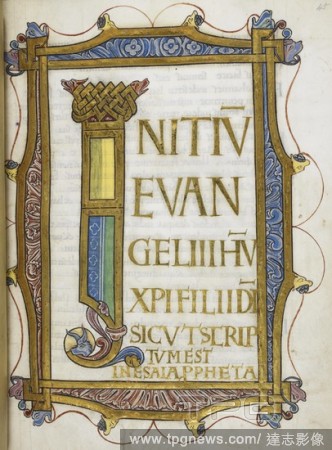 INITIV̄
EVAN
GELII IH̄V
XPI FILII DĪ
SICVT SCRIP
TVM EST
IN ESAIA PPHETA
www.tpgnews.com/ 達志影像